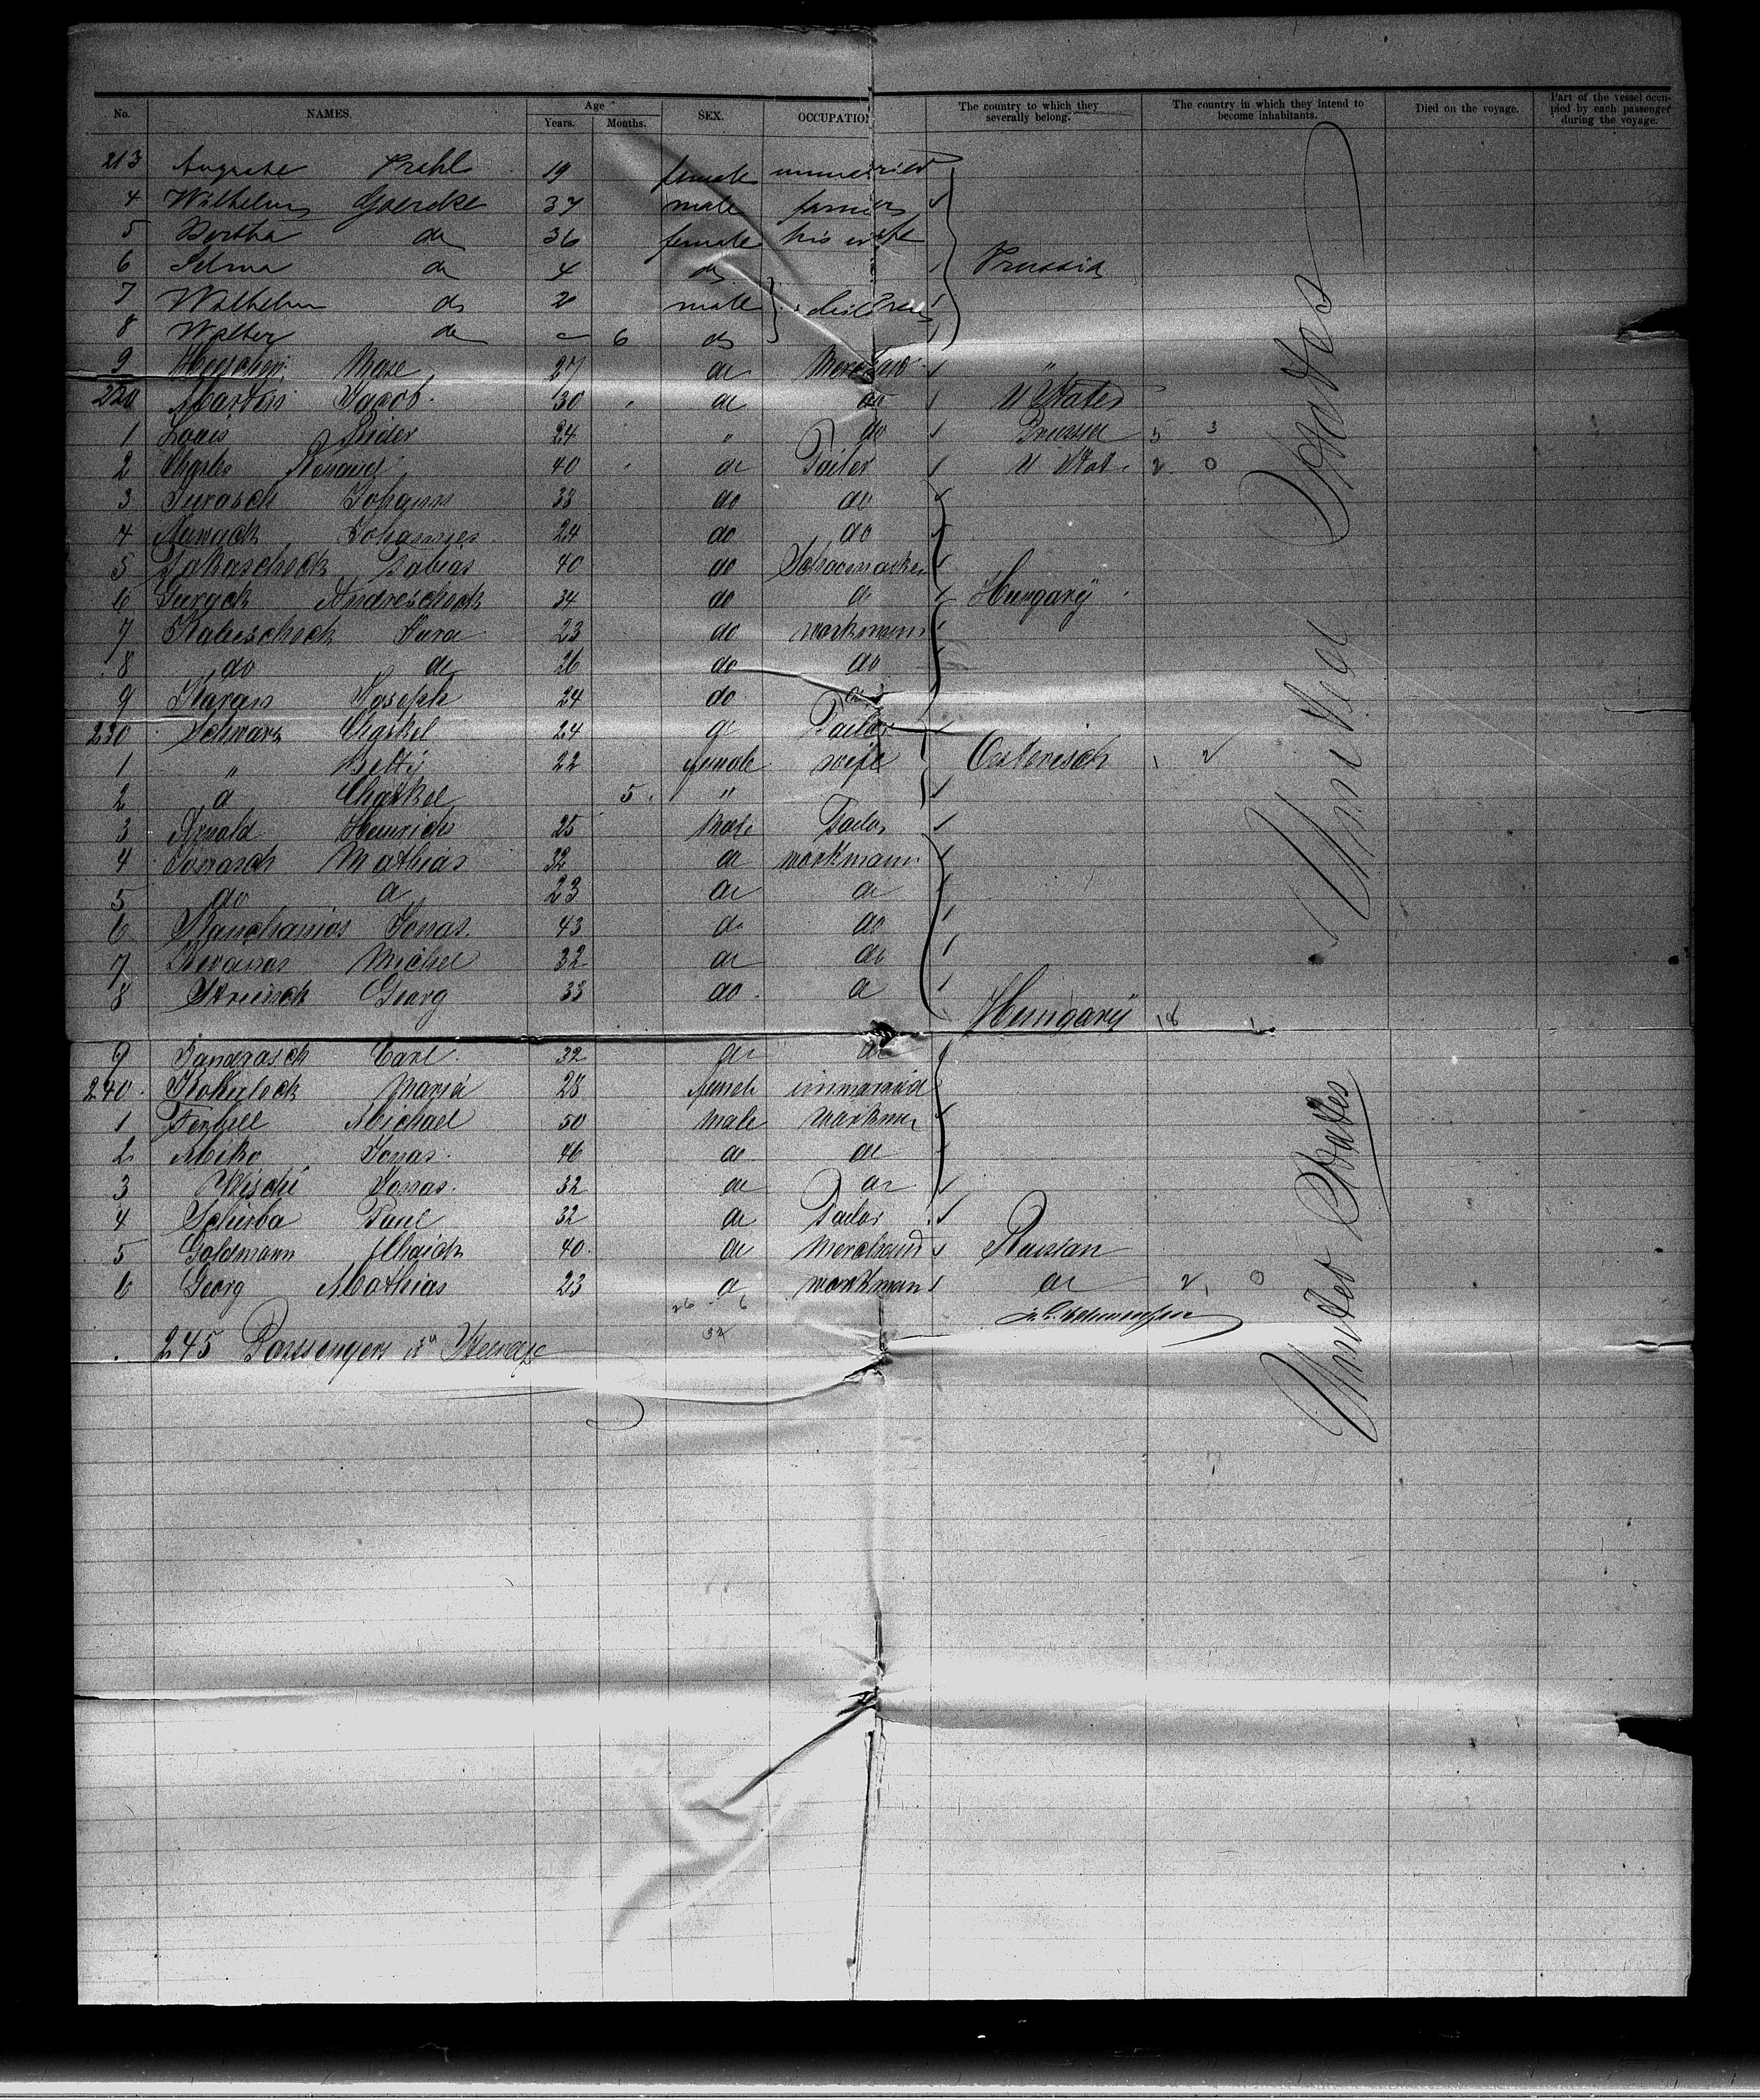 No. NAMES. Age Years. Months. SEX. OCCUPATION The country to which they severally belong. The country in which they intend to become inhabitants. Died on the voyage. Part of the vessel occupied by each passenger during the voyage.
213 Auguste Prahl 19 female unmarried
4 Wilhelm Goercke 37 male farmer
5 Bertha do 36 female his wife
6 Selma do 4 do Prussia
7 Wilhelm do 2 male children
8 Walter do 6 do
9 Max 27 do
220 Martin Jacob 30 do do U States
1 Louis 24 " do Prussia 5 3
2 Charles 40 do Tailor U Stat. 2 0
3 Jurasch Johann 33 do do
4 Johannes 24 do do
5 Tobias 40 do Schoomaker
6 Andreschock 34 do do Hungary
7 Kaluschock Jura 23 do workmann
8 do do 26 do do
9 Karan Joseph 24 do do
230 Schwarz Chaskel 24 d Tailor
1 " Betty 22 female wife Oesterisch 1 2
2 d Chaskel 5 "
3 Arnold Heinrich 25 Male Tailor
4 Mathias 32 do workmann
5 do d 23 do do
6 Jonas 43 do do
7 Michel 32 do do
8 Georg 33 do d Hungary 18 1
9 Jandrasch Carl 32 do do
240 Maria 28 female unmarried
1 Michael 50 male workman
2 Miko Jonas 46 do do
3 Jonas 32 do do
4 Schurba Paul 32 do Tailor
5 Goldmann Chaich 40 do Merchand Russian
6 Georg Mathias 23 d workman do 2 0
26 6
32
245 Passengers in Steerage
United States
United States